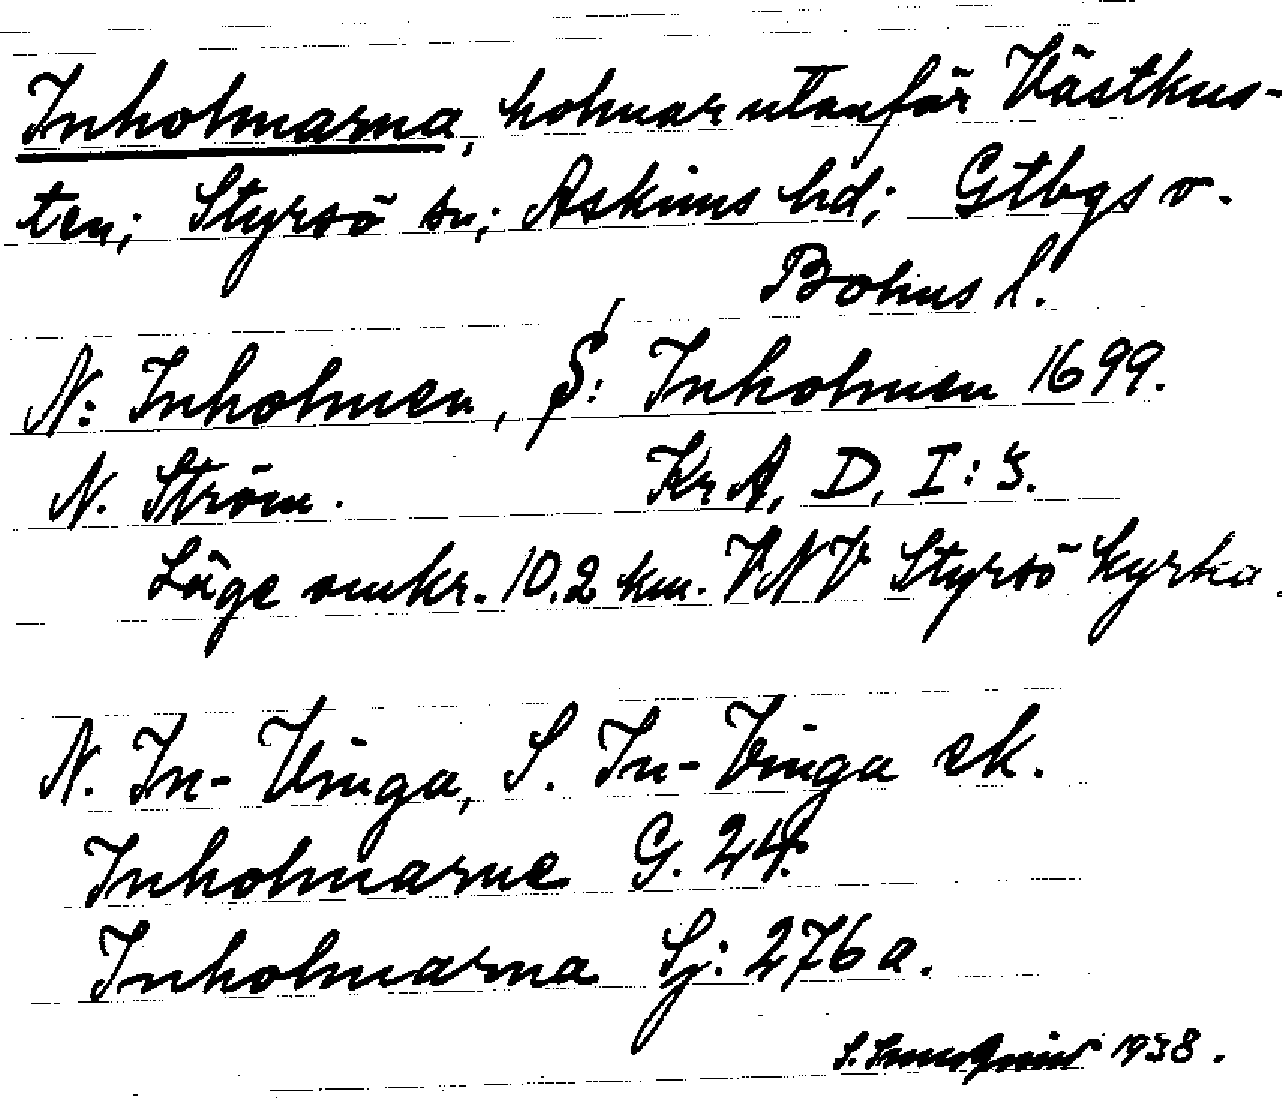 Inholmarna, holmar utanför Västkus-
ten; Styrsö sn; Askims hd; Gtbgs o.
Bohus l.
N: Inholmen, S: Inholmen 1699.
N. Ström. Kr A, D, I: 3.
Läge omkr. 10.2 km. VNV Styrsö kyrka.
N. In-Vinga, S. In-Vinga ek.
Inholmarne G. 24.
Inholmarna Sj: 276a.
S. 1938.